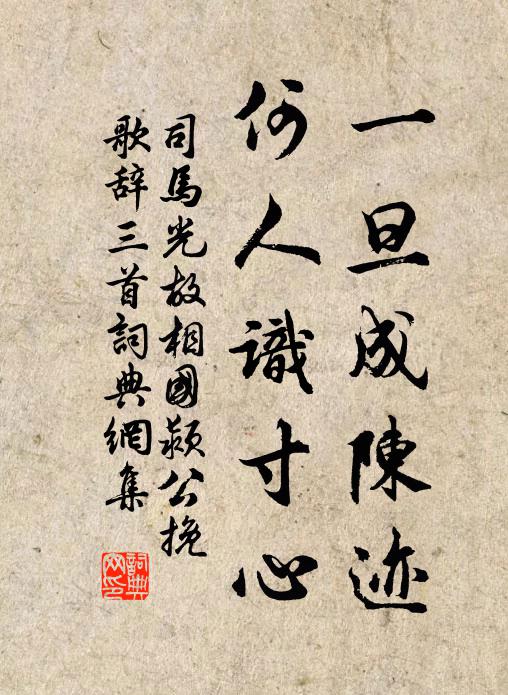 一旦成陳迹
何人識寸心
司馬光故相國颍公挽
歌辞三首詞典網集
詞典網印